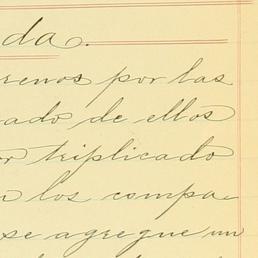 da.
renos por las
ado de ellos
or triplicado
n los compa-
se agregue un